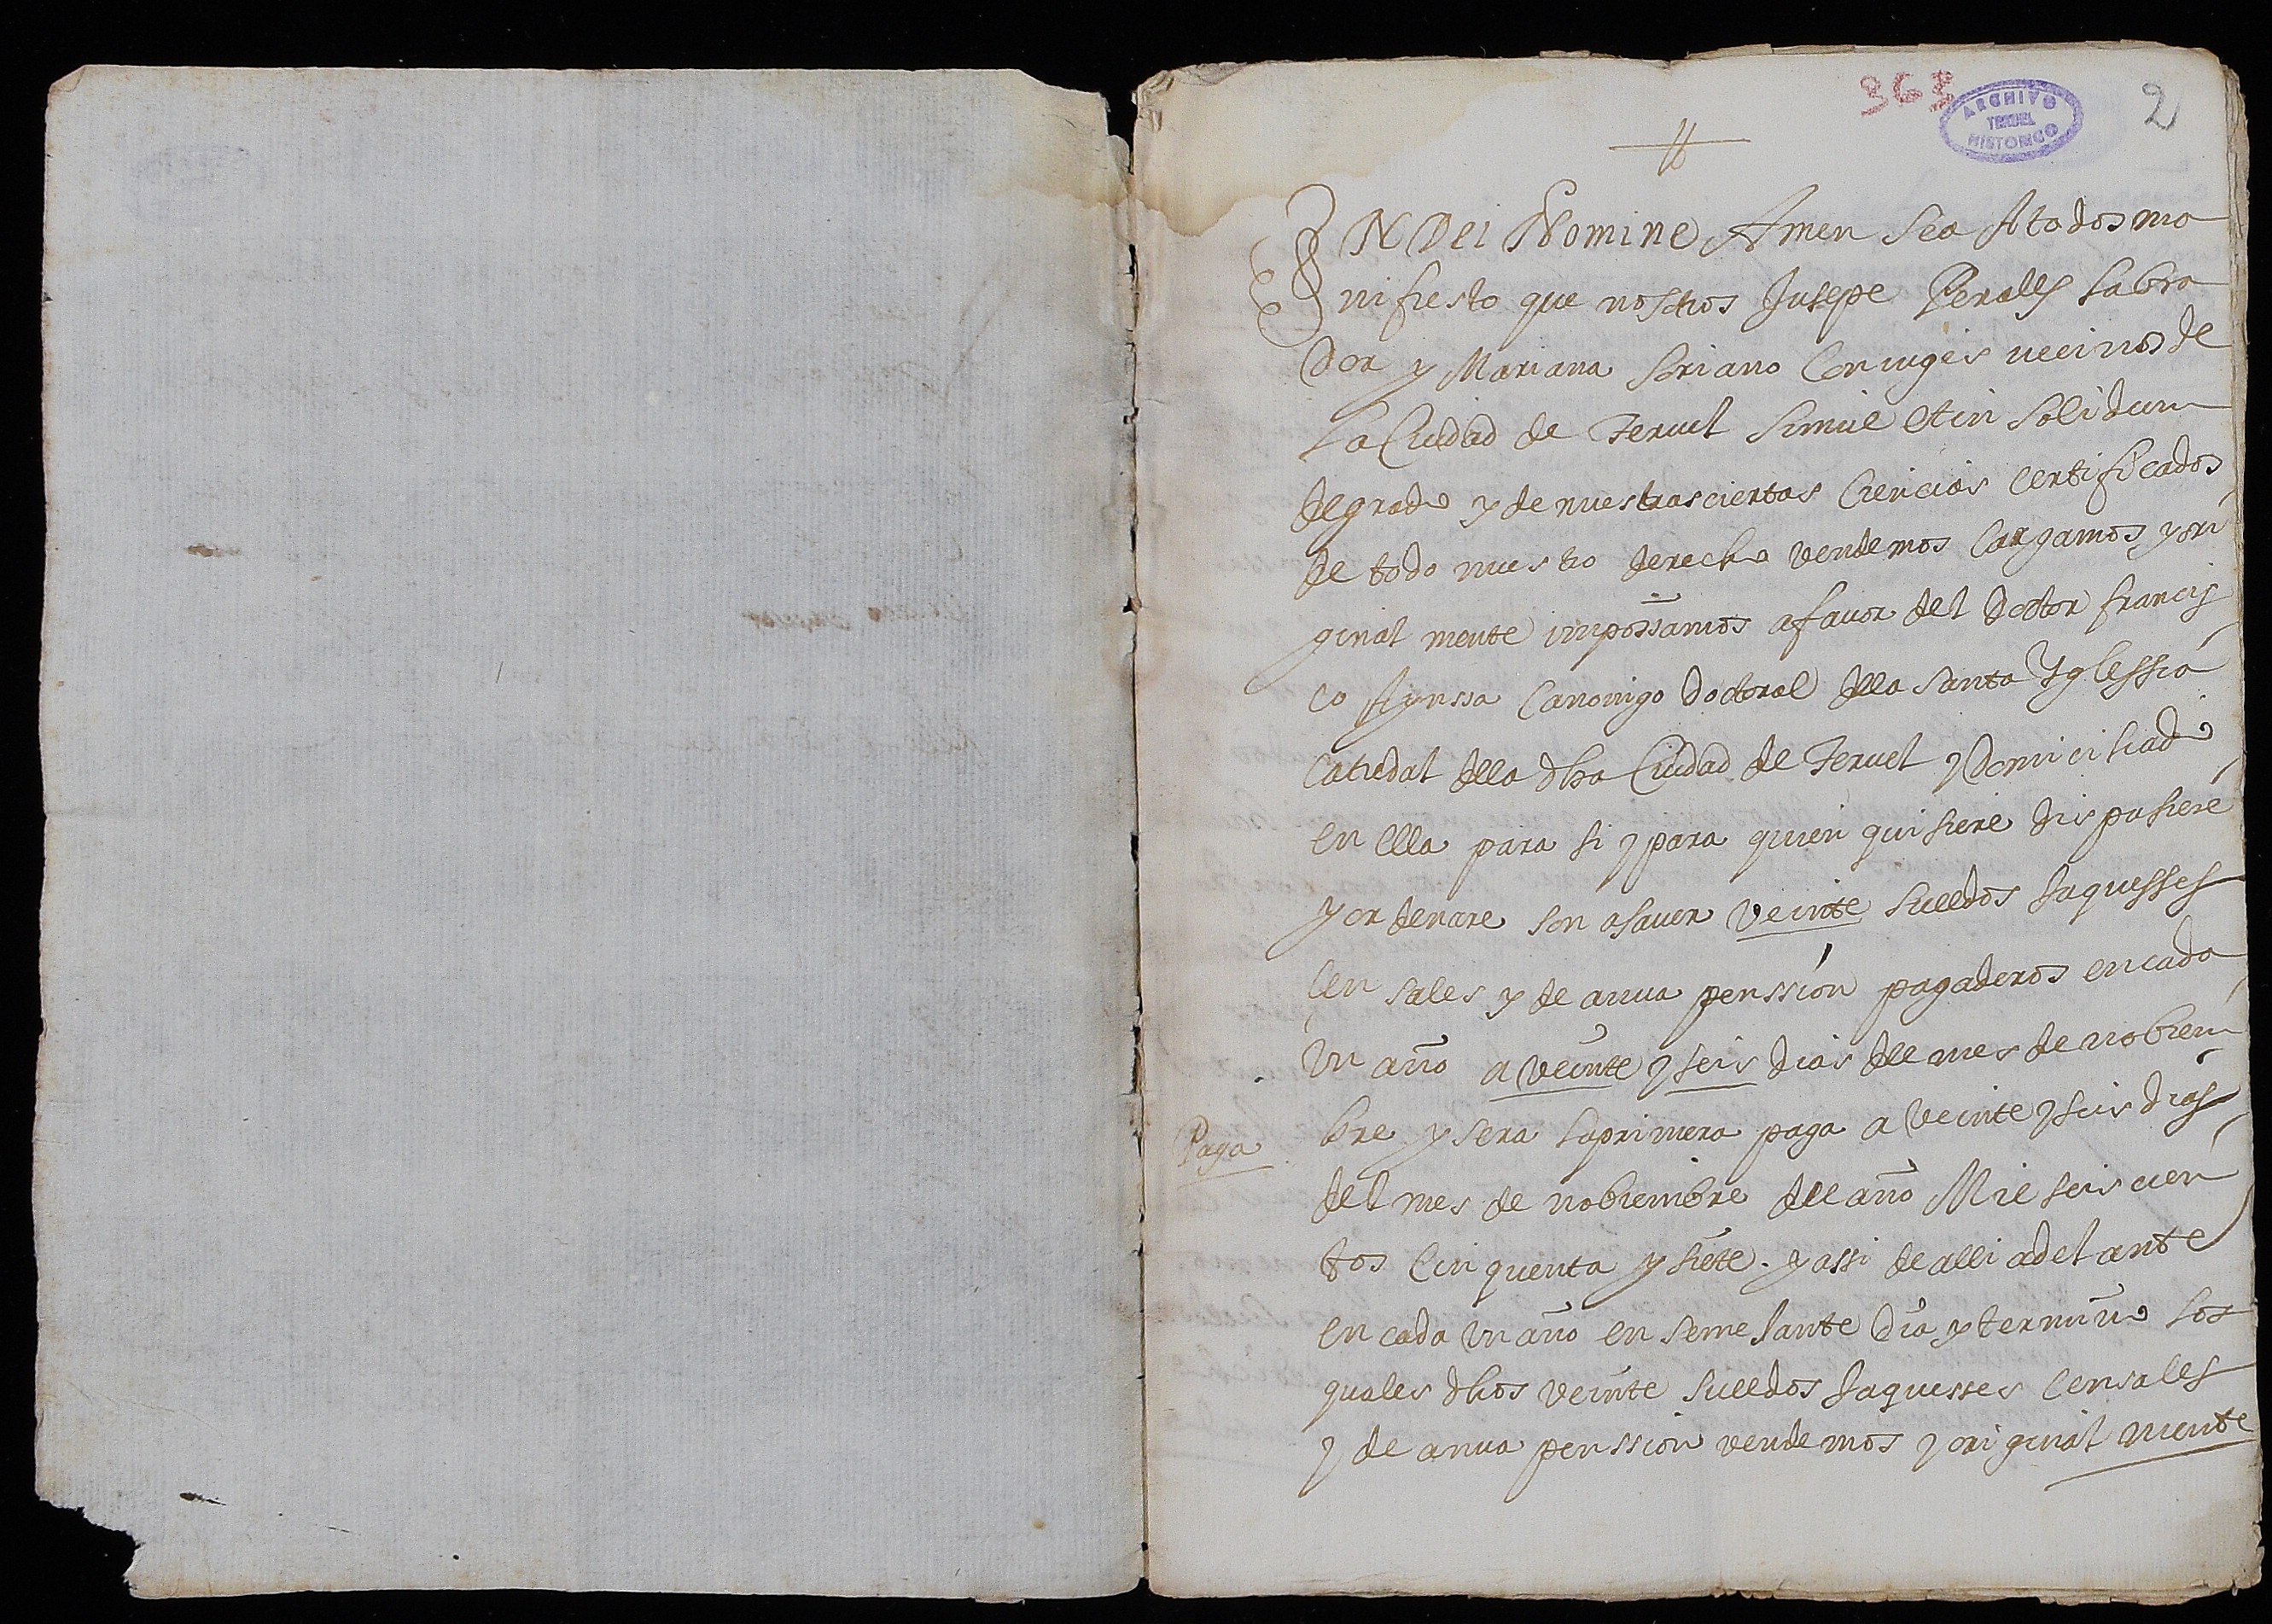 363
ARCHIVO
TERUEL
HISTORICO
2
IN Dei Nomine Amen Sea A todos ma
nifiesto que nosotros Jusepe Perales labra
dor y Mariana Soriano Conuges vecinos de
La Ciudad de Teruel Simul et in Solidum
de grado y de nuestras ciertas Ciencias Certificados
de todo nuestro derecho vendemos Cargamos y ori
ginal mente impossamos a fauor del Doctor Francis
co Aynssa Canonigo Doctoral della Santa Yglessia
Catredal della dha Ciudad de Teruel y Domiciliado
en ella para si y para quien quisiere dispusiere
y ordenare son a sauer veinte sueldos Jaquesses
Censales y de anua penssion pagaderos en cada
Un año a veinte y seis dias del mes de nobiem
Paga
bre y sera la primera paga a veinte y seis dias
del mes de nobiembre del año Mil seis cien
tos Cinquenta y siete. y assi de alli adelante
en cada un año en semejante dia y termino los
quales dhos veinte sueldos Jaquesses Censales
y de anua penssion vendemos y original mente